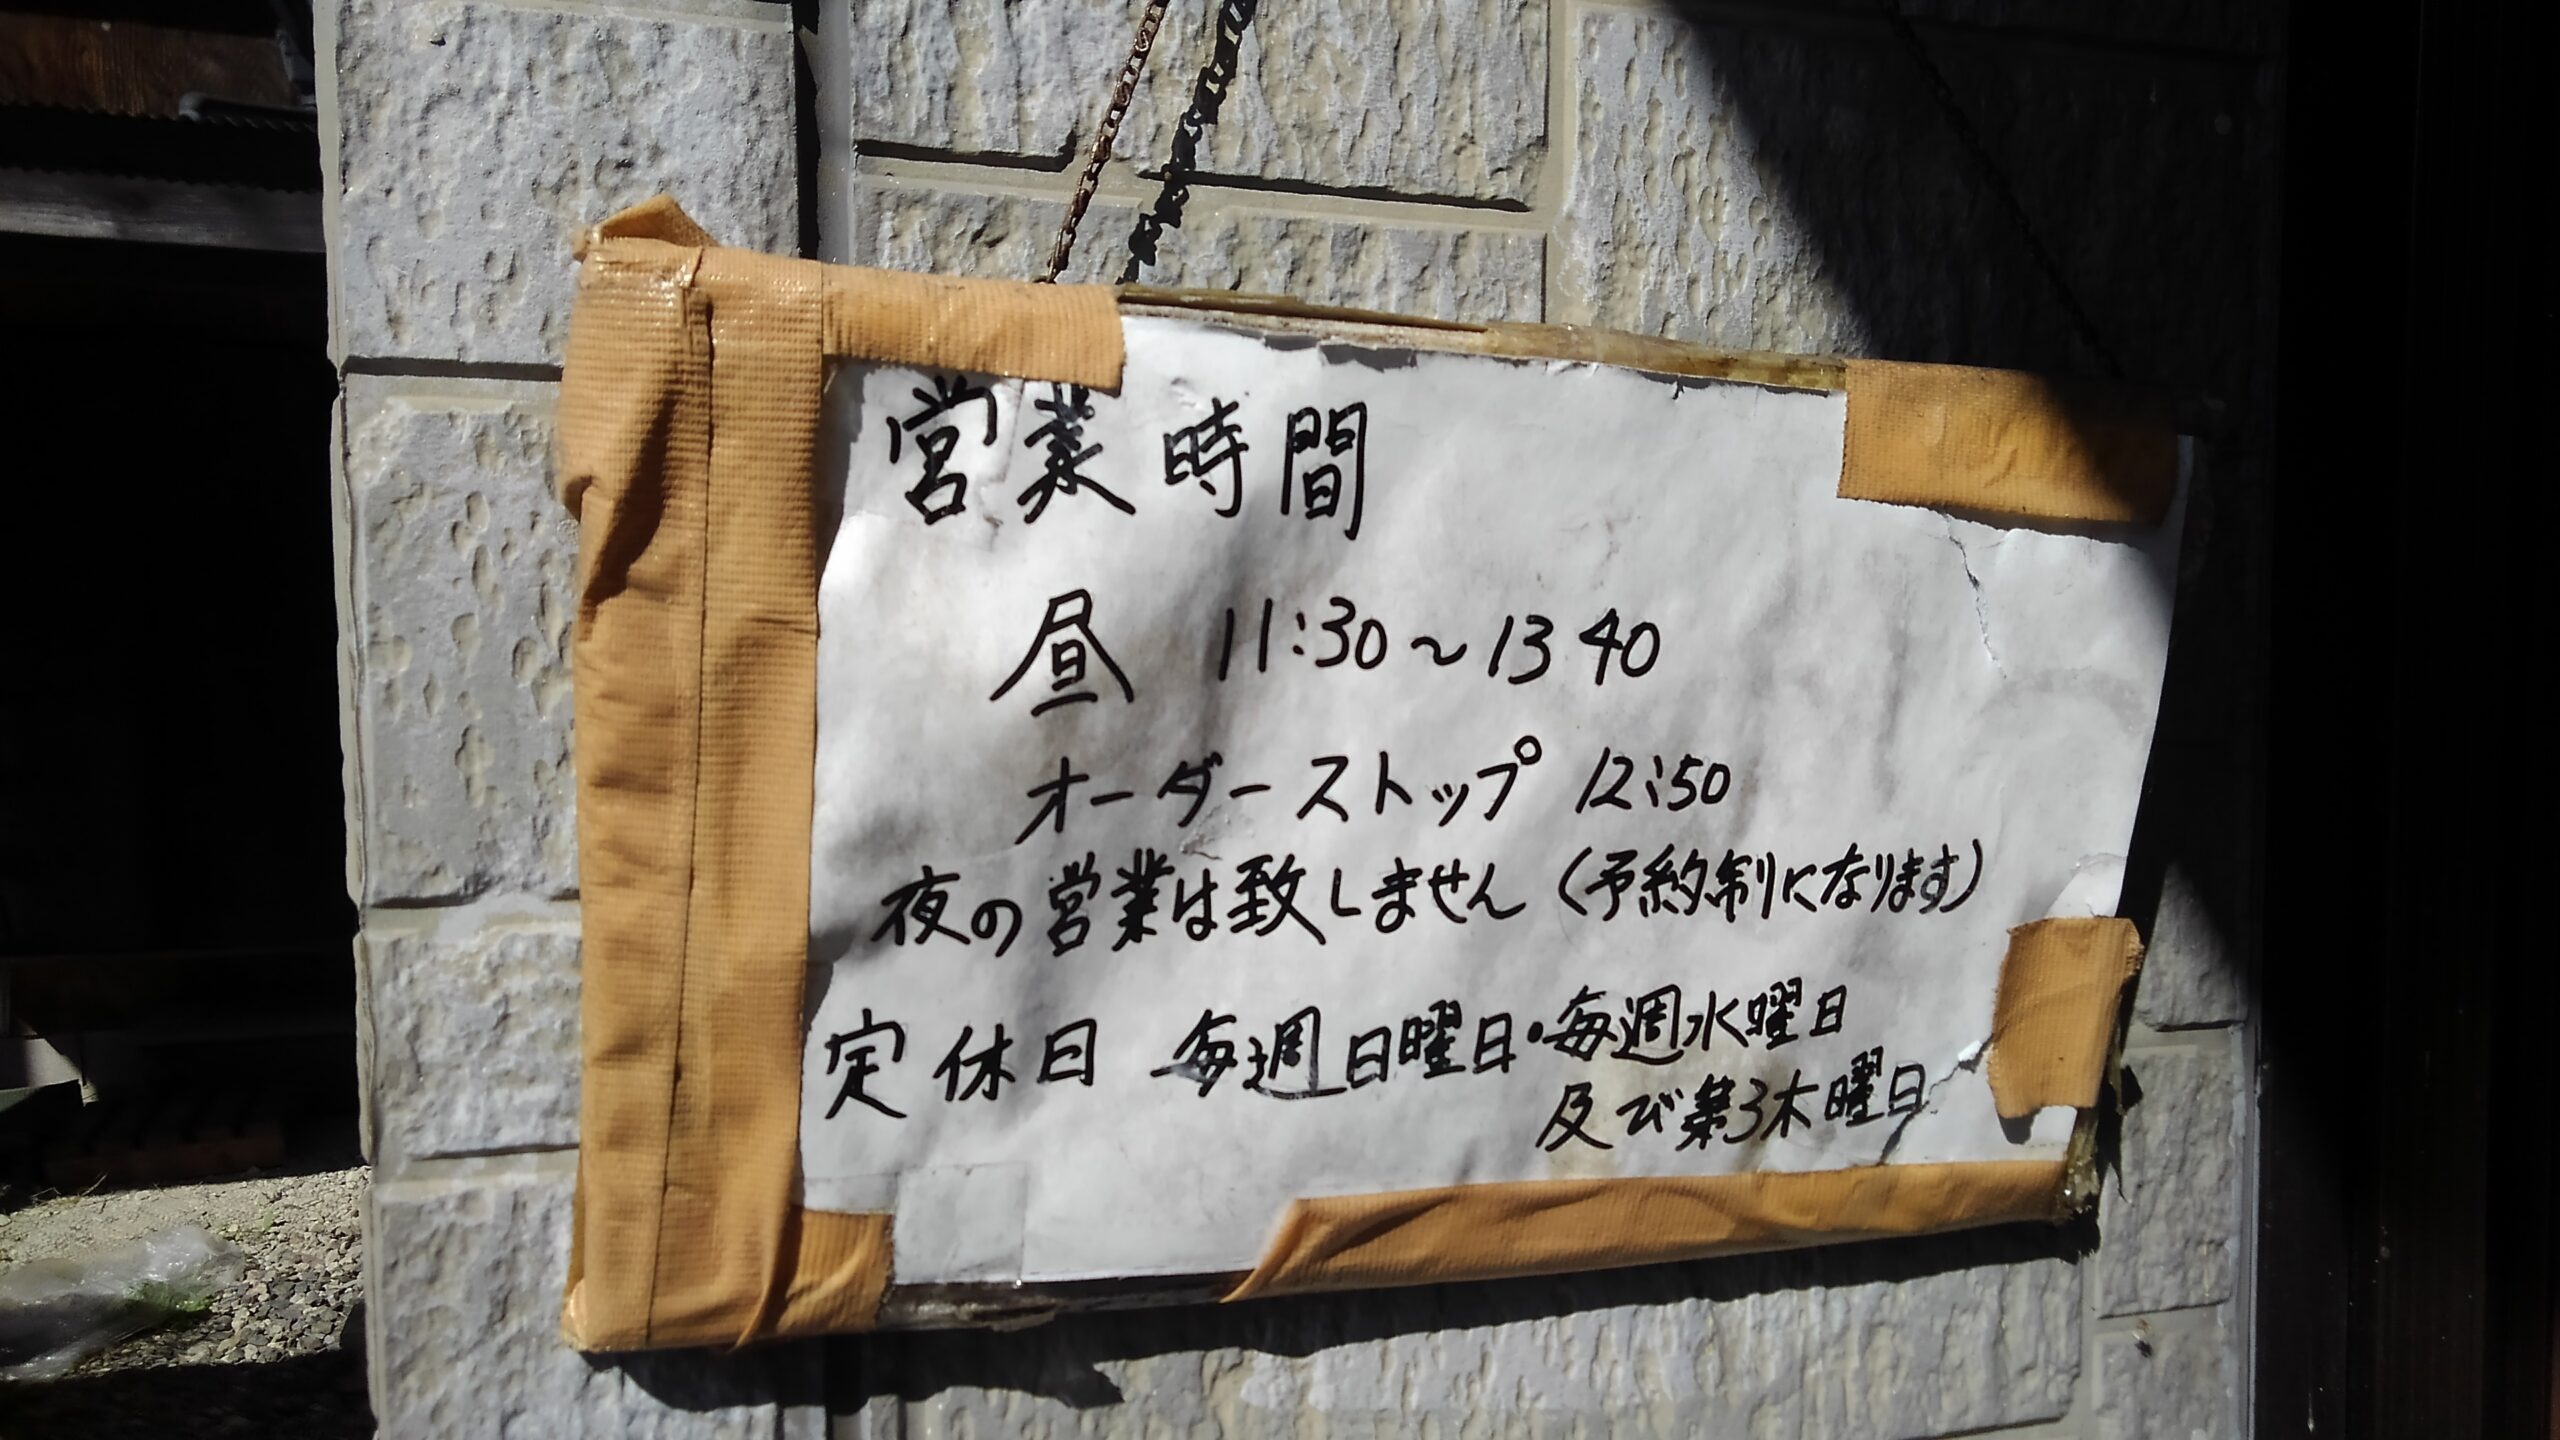 営業時間
昼 11:30～13 40
オーダーストップ 12:50
夜の営業は致しません(予約制になります)
定休日 毎週日曜日・毎週水曜日
及び第3木曜日